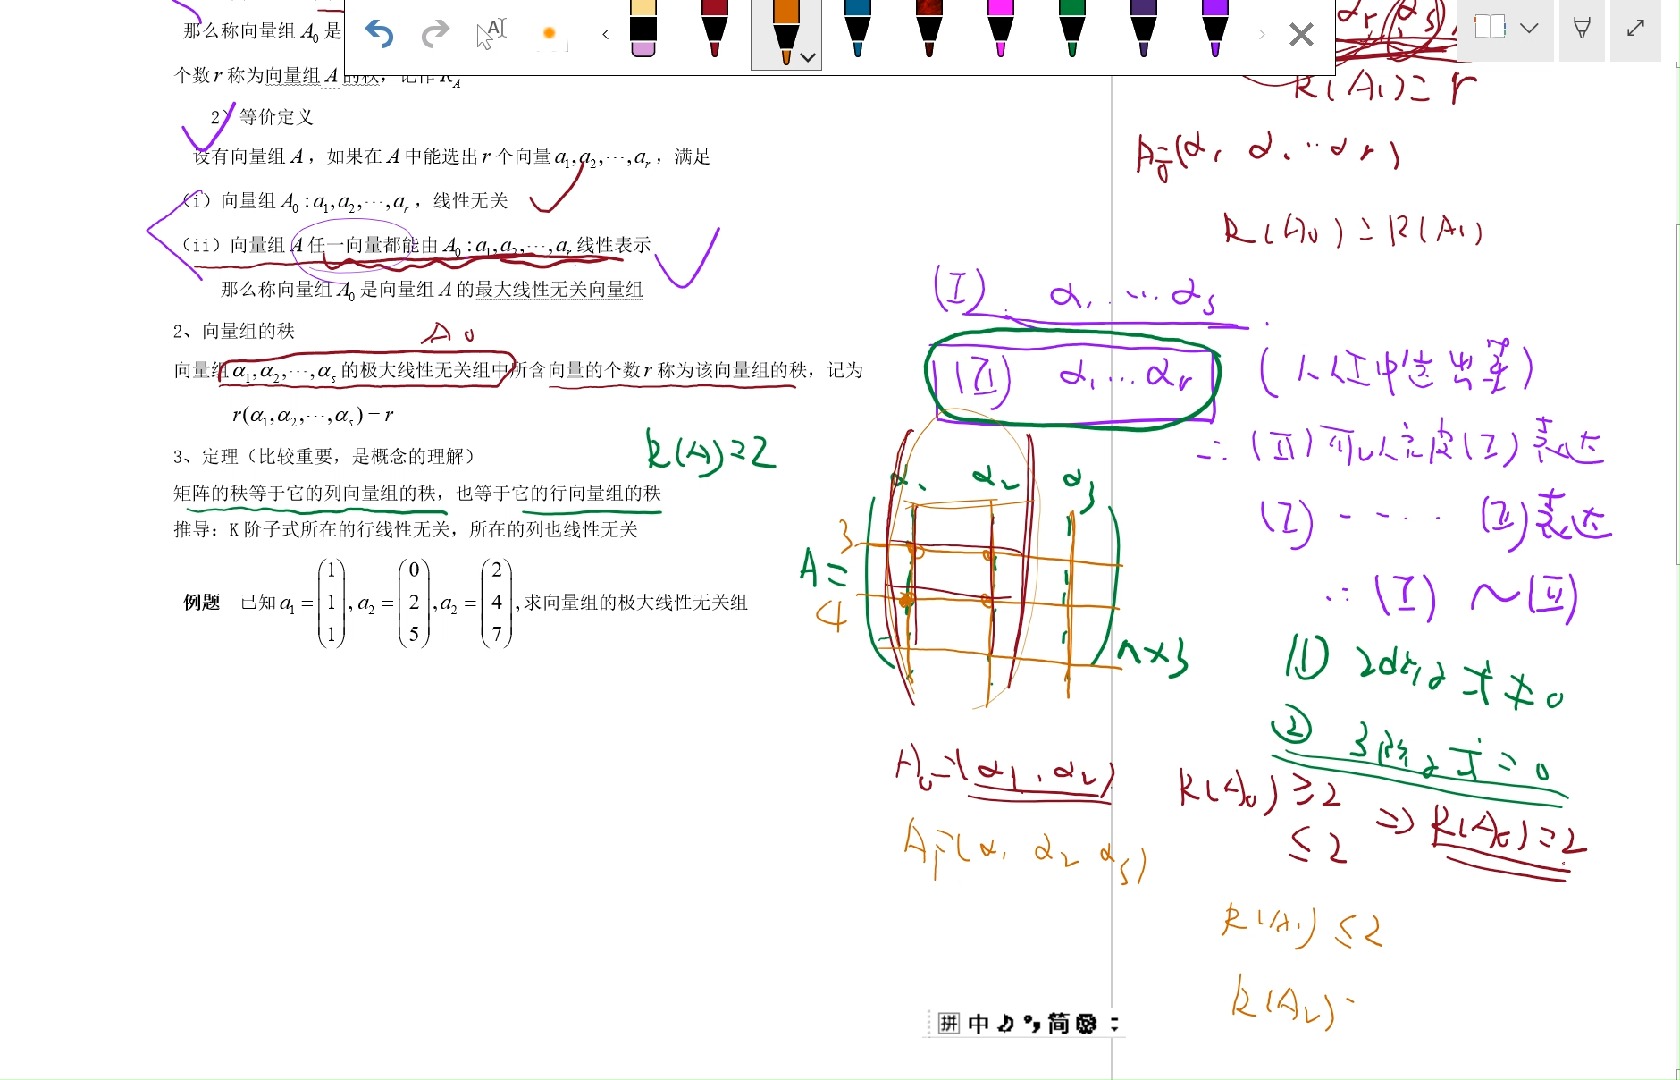 那么称向量组 A₀ 是
个数 r 称为向量组 A 的秩，记作 R_A
2）等价定义
设有向量组 A，如果在 A 中能选出 r 个向量 a₁,a₂,⋯,aᵣ，满足
（i）向量组 A₀ : a₁,a₂,⋯,aᵣ，线性无关
（ii）向量组 A 任一向量都能由 A₀ : a₁,a₂,⋯,aᵣ 线性表示
那么称向量组 A₀ 是向量组 A 的最大线性无关向量组
2、向量组的秩
A₀
向量组 α₁,α₂,⋯,αₛ 的极大线性无关组中所含向量的个数 r 称为该向量组的秩，记为
r(α₁,α₂,⋯,αₛ)=r
R(A)=2
3、定理（比较重要，是概念的理解）
矩阵的秩等于它的列向量组的秩，也等于它的行向量组的秩
推导：K 阶子式所在的行线性无关，所在的列也线性无关
例题 已知 a₁ = (1 1 1), a₂ = (0 2 5), a₂ = (2 4 7), 求向量组的极大线性无关组
αᵣ (αₛ)
R(A₁)=r
A₀=(α₁ α₂ ⋯ αᵣ)
R(A₀)=R(A₁)
(I) α₁ ⋯ αₛ
(II) α₁ ⋯ αᵣ (从I中选出来)
∴ (II) 可以完成(I)表达
(I) ---- (II)表达
∴ (I) ~ (II)
α₁ α₂ α₃
3
A=
4
n×3
(1) 2阶子式≠0
② 3阶子式=0
A₀=(α₁,α₂)
R(A₀)≥2
≤2
⇒ R(A₀)=2
A₁=(α₁ α₂ α₃)
R(A₁)≤2
R(A₂)=
拼 中 简